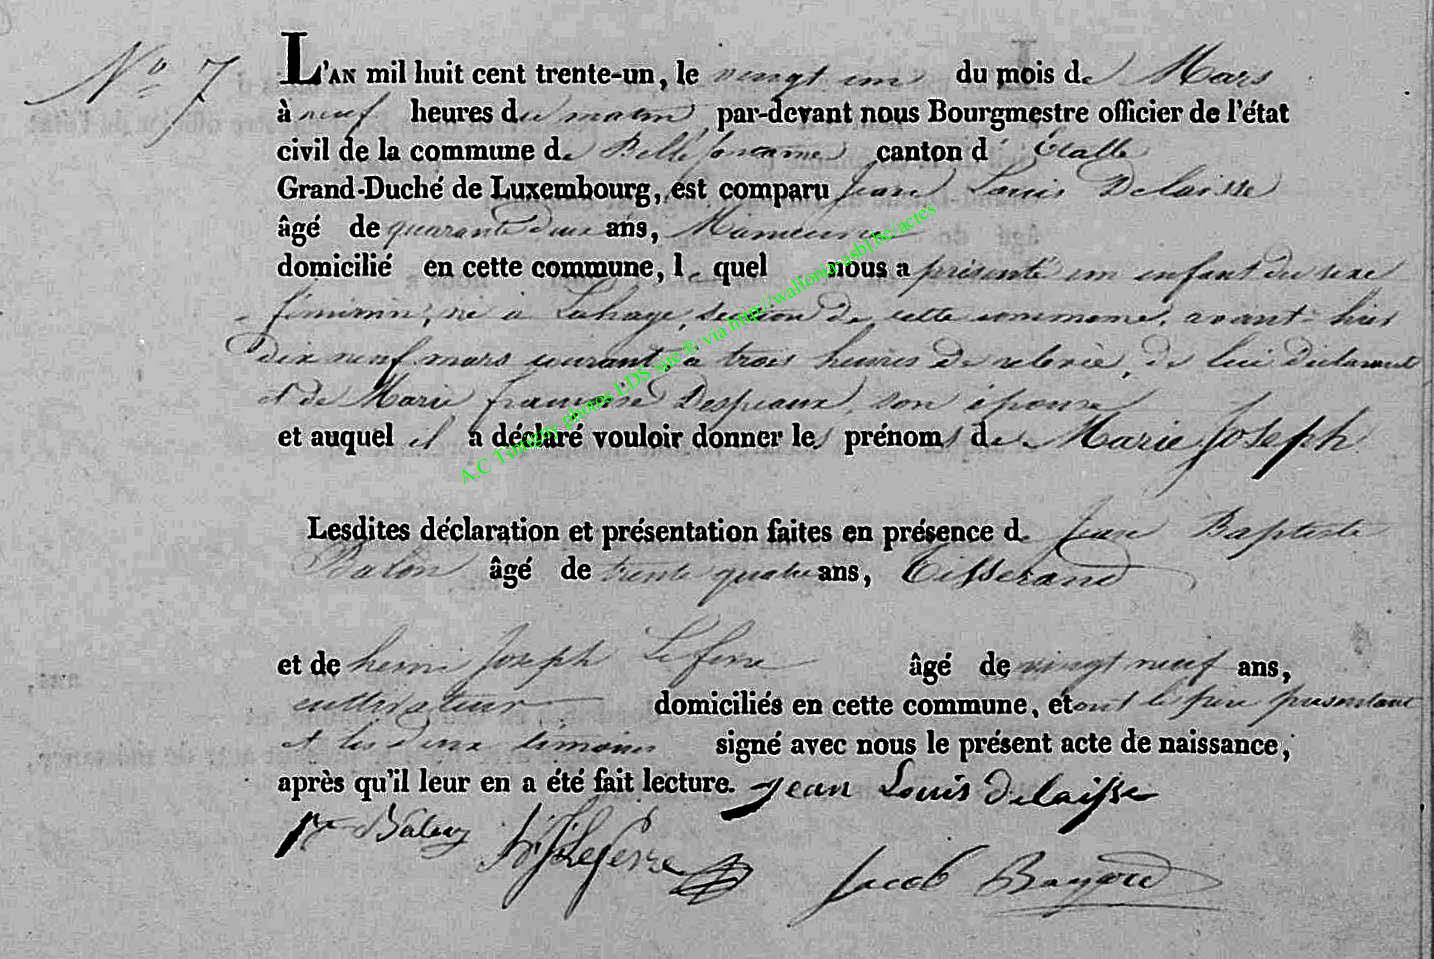 N° 7
L'AN mil huit cent trente-un, le vingt un du mois de Mars
à neuf heures du matin par-devant nous Bourgmestre officier de l'état
civil de la commune de Bellefontaine canton d'Etalle
Grand-Duché de Luxembourg, est comparu Jean Louis Delaisse
âgé de quarante deux ans, Manœuvre
domicilié en cette commune, lequel nous a présenté un enfant du sexe
féminin, né à Lahage, section de cette commune, avant-hier
dix neuf mars courant, à trois heures de relevée, de lui déclarant
et de Marie françoise Despeaux, son épouse
et auquel il a déclaré vouloir donner les prénoms de Marie Joseph
Lesdites déclaration et présentation faites en présence de Jean Baptiste
Balon âgé de trente quatre ans, Tisserand
et de henri Joseph Lefevre âgé de vingt neuf ans,
cultivateur domiciliés en cette commune, et ont le père présentant
et les deux témoins signé avec nous le présent acte de naissance,
après qu'il leur en a été fait lecture. Jean Louis Delaisse
h j Lefevre Jacob Bayard
A.C Tintigny photos LDS site B via http://wallonia.asbl.be/actes